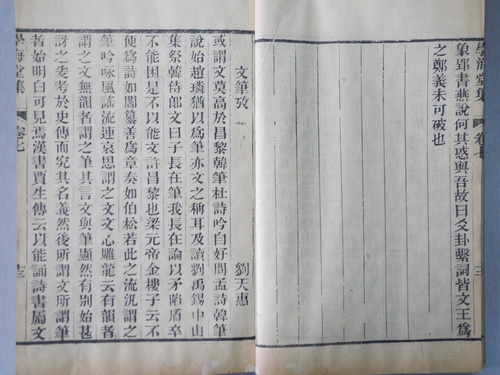 學海堂集
卷七
象郢書燕說何其惑與吾故曰爻卦繫詞皆文王爲
之鄭義未可破也
文筆攷
劉天惠
或謂文莫高於昌黎韓筆杜詩吟自好問孟詩韓筆
說始趙璘猶以爲筆亦文之稱耳及讀劉禹錫中山
集祭韓侍郎文曰子長在筆我長在論以矛陷盾卒
不能困是不以能文許昌黎也梁元帝金樓子云不
便爲詩如閻纂善爲章奏如伯松若此之流汎謂之
筆吟咏風謠流連哀思謂之文文心雕龍云有韻者
謂之文無韻者謂之筆其言文與筆顯然有別始甚
訝之委考於史傳而究其名義然後所謂文所謂筆
者始明白可見焉漢書賈生傳云以能誦詩書屬文
學海堂集
卷七
十三